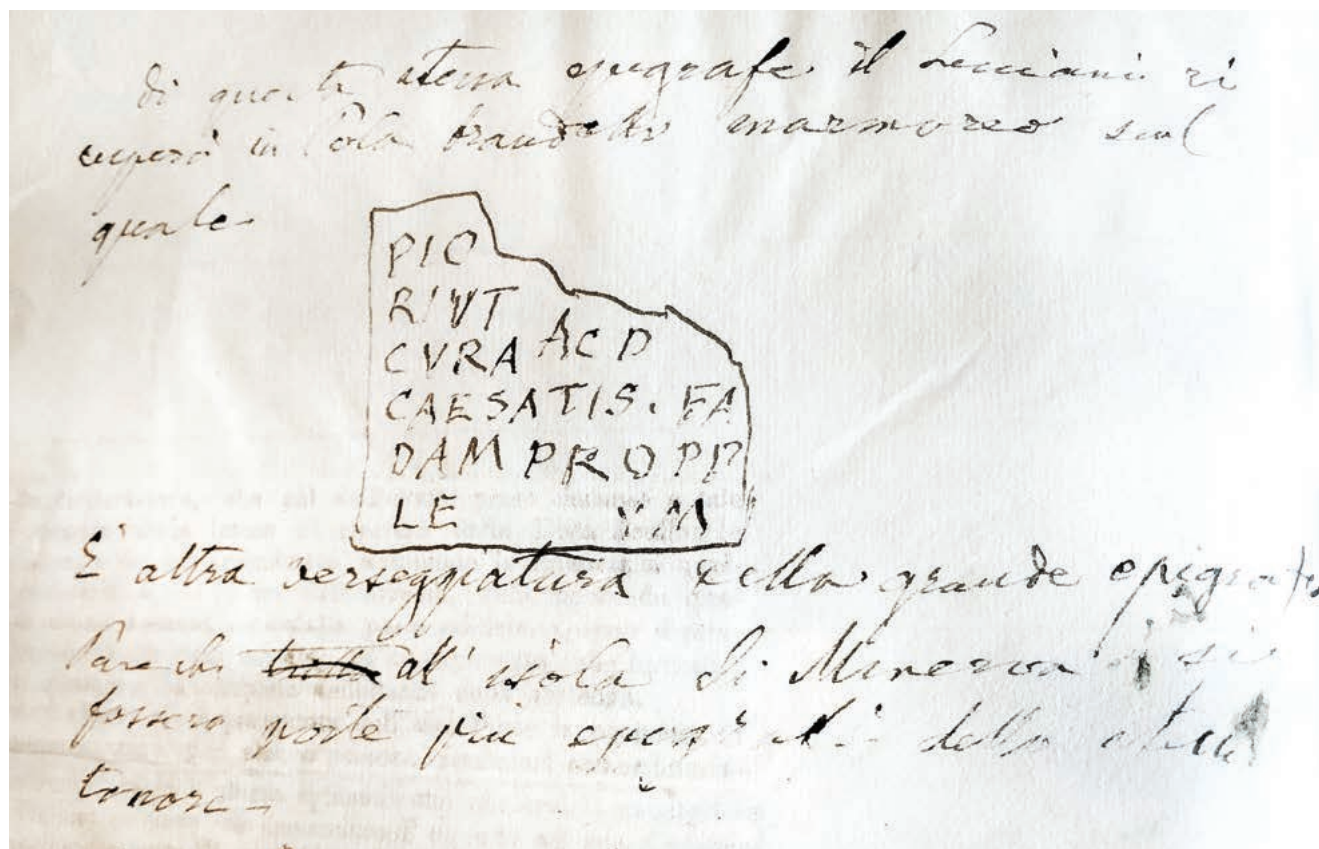 di questa stessa epigrafe il Lucciani ri
cuperò in Pola brandello marmoreo sul
quale
PIO
RIVVT
CVRA AC D
CAESATIS. FA
DAM PRO PP
LE VM
E altra verseggiatura nella grande epigrafe
Pare che all' isola di Minerva si
fossero poste più epigrafi dello stesso
tenore -